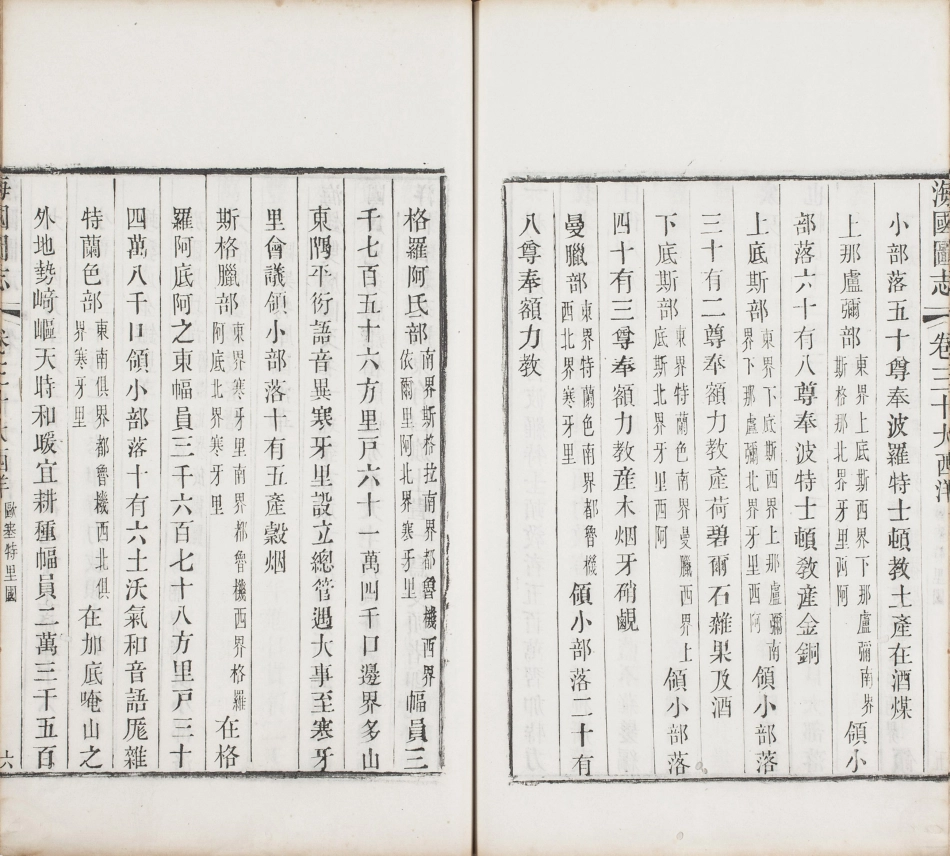 海國圖志 卷三十 大西洋
小部落五十尊奉波羅特士頓教土產在酒煤
上那盧彌部東界上底斯西界下那盧彌南界斯格那北界牙里西阿領小
部落六十有八尊奉波特士頓教產金銅
上底斯部東界下底斯西界上那盧彌南界下那盧彌北界牙里西阿領小部落
三十有二尊奉額力教產荷碧爾石雜果及酒
下底斯部東界特蘭色南界曼臘西界上底斯北界寒牙里西阿領小部落
四十有三尊奉額力教產木烟牙硝覷
曼臘部東界特蘭色南界都魯機西北界寒牙里領小部落二十有
八尊奉額力教
格羅阿氏部南界斯格拉南界都魯機西界依爾里阿北界寒牙里幅員三
千七百五十六方里戸六十一萬四千口邊界多山
東隅平衍語音異寒牙里設立總管遇大事至寒牙
里會議領小部落十有五產穀烟
斯格臘部東界寒牙里南界都魯機西界格羅阿底北界寒牙里在格
羅阿底阿之東幅員三千六百七十八方里戸三十
四萬八千口領小部落十有六土沃氣和音語厖雜
特蘭色部東南俱界都魯機西北俱界寒牙里在加底唵山之
外地勢﨑嶇天時和暖宜耕種幅員二萬三千五百
海國圖志 大西洋 歐塞特里國 六